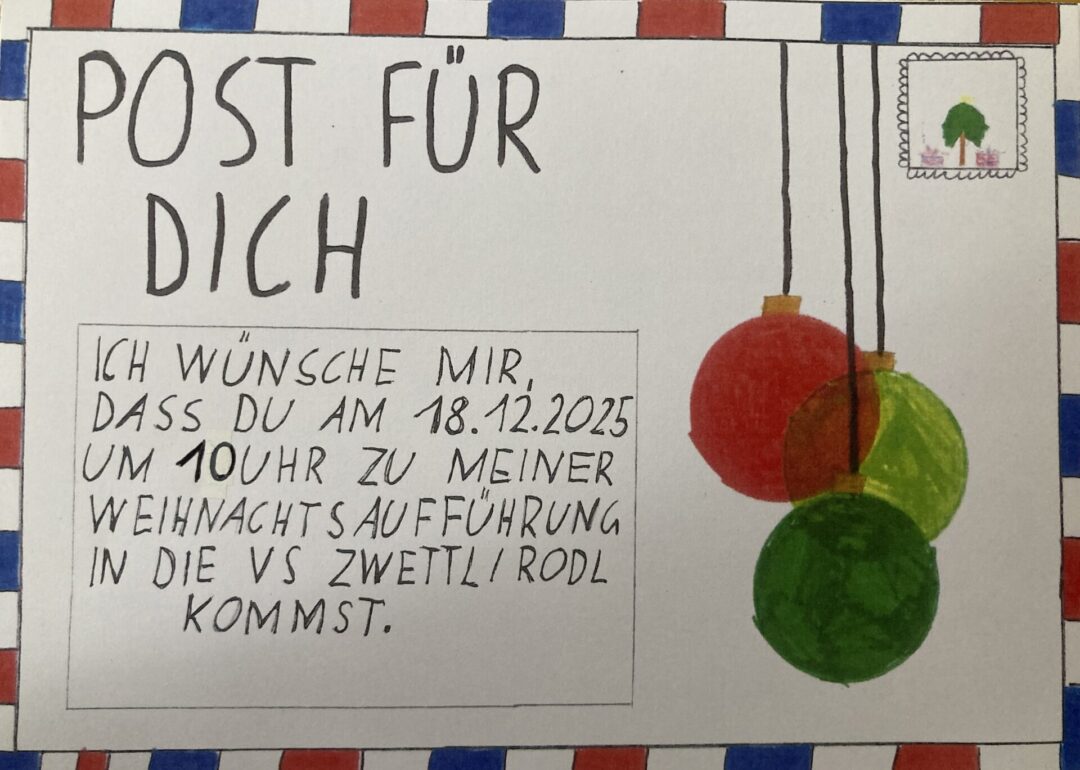 POST FÜR
DICH
ICH WÜNSCHE MIR,
DASS DU AM 18.12.2025
UM 10 UHR ZU MEINER
WEIHNACHTSAUFFÜHRUNG
IN DIE VS ZWETTL/RODL
KOMMST.